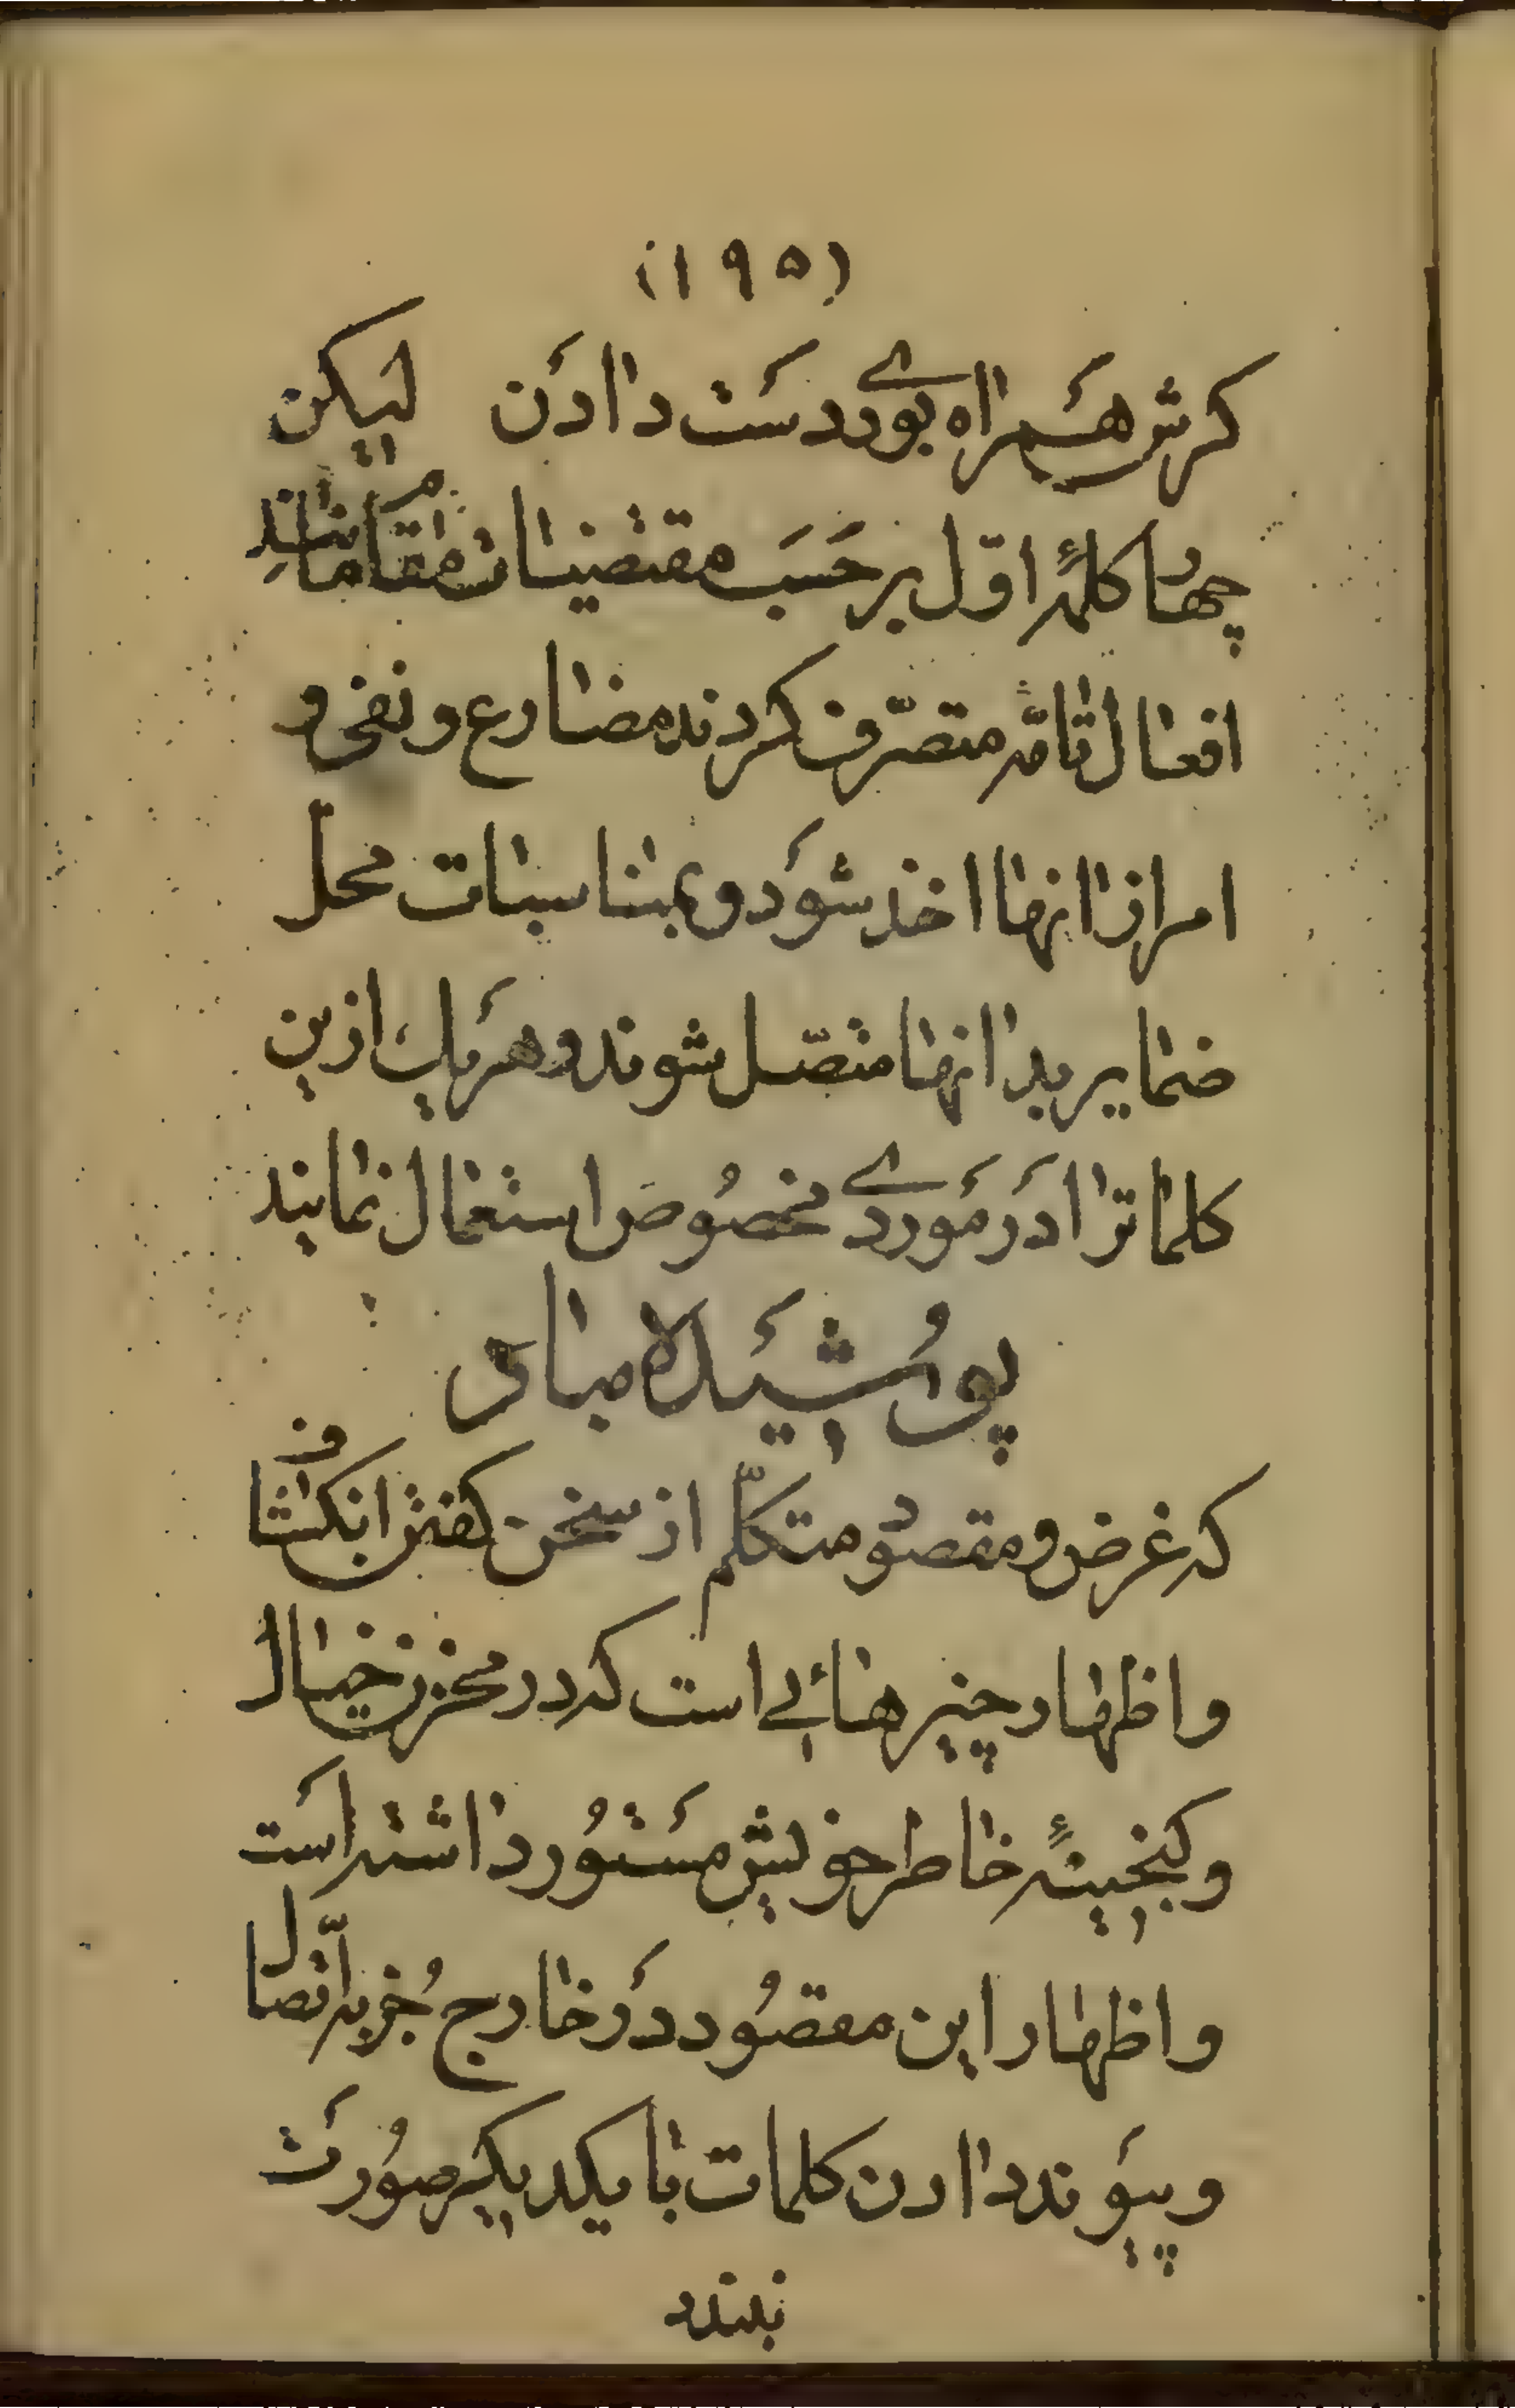 (۱۹۵)
کرش هَمراه بوردے دسَت دادَن لیکن
چهار کلمهٔ اوّل برحَسَب مقتضیات مقام مانندِ
افعال تامّه متصرّف کردند مضارع و نفی و
امر از انها اخذ شوَد و بمناسبات محلّ
ضمایر بدانها متصّل شوند و هَر یک ازین
کلماترا دَر مَوردے مخصُوص استعمال نمایند
پوُشیَده مباد
که غرض و مقصود متکلّم از سخن کفتن انکشاف
و اظهار چیزهائی است که در مخزن خیال
و کنجینهٔ خاطر خویش مَستُور داشته اَست
و اظهار این مقصُود دَر خارج جُز به اتّصال
و پیوَند دادن کلمات با یکدیکر صُورَت
نبندد